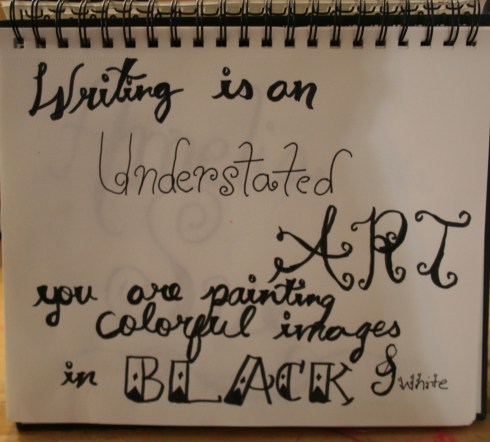 Writing is an
Understated
ART
you are painting
colorful images
in BLACK & white